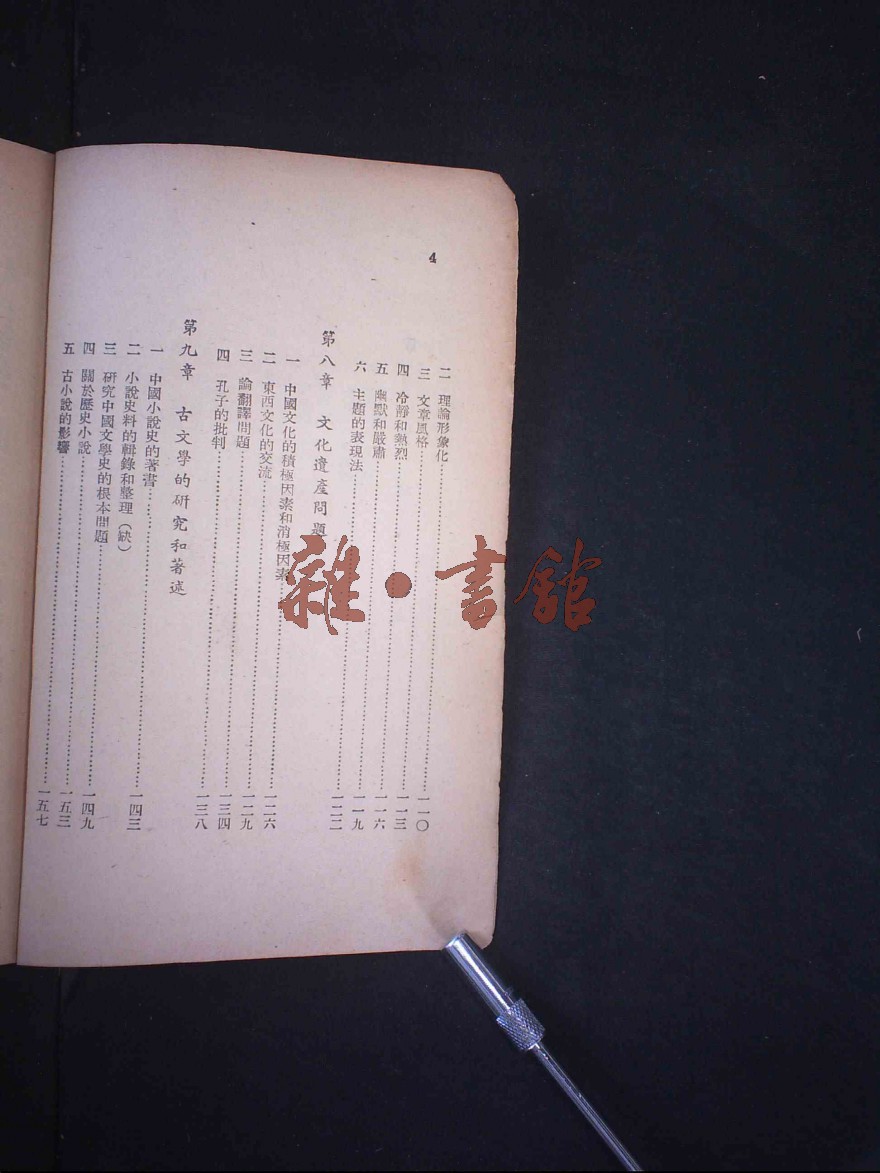 4
二 理論形象化……一一〇
三 文章風格……一一三
四 冷靜和熱烈……一一六
五 幽默和嚴肅……一一九
六 主題的表現法……一二二
第八章 文化遺產問題
一 中國文化的積極因素和消極因素……一二六
二 東西文化的交流……一二九
三 論翻譯問題……一三四
四 孔子的批判……一三八
第九章 古文學的研究和著述
一 中國小說史的著書……一四三
二 小說史料的輯錄和整理(缺)
三 研究中國文學史的根本問題……一四九
四 關於歷史小說……一五三
五 古小說的影響……一五七
雜·書館